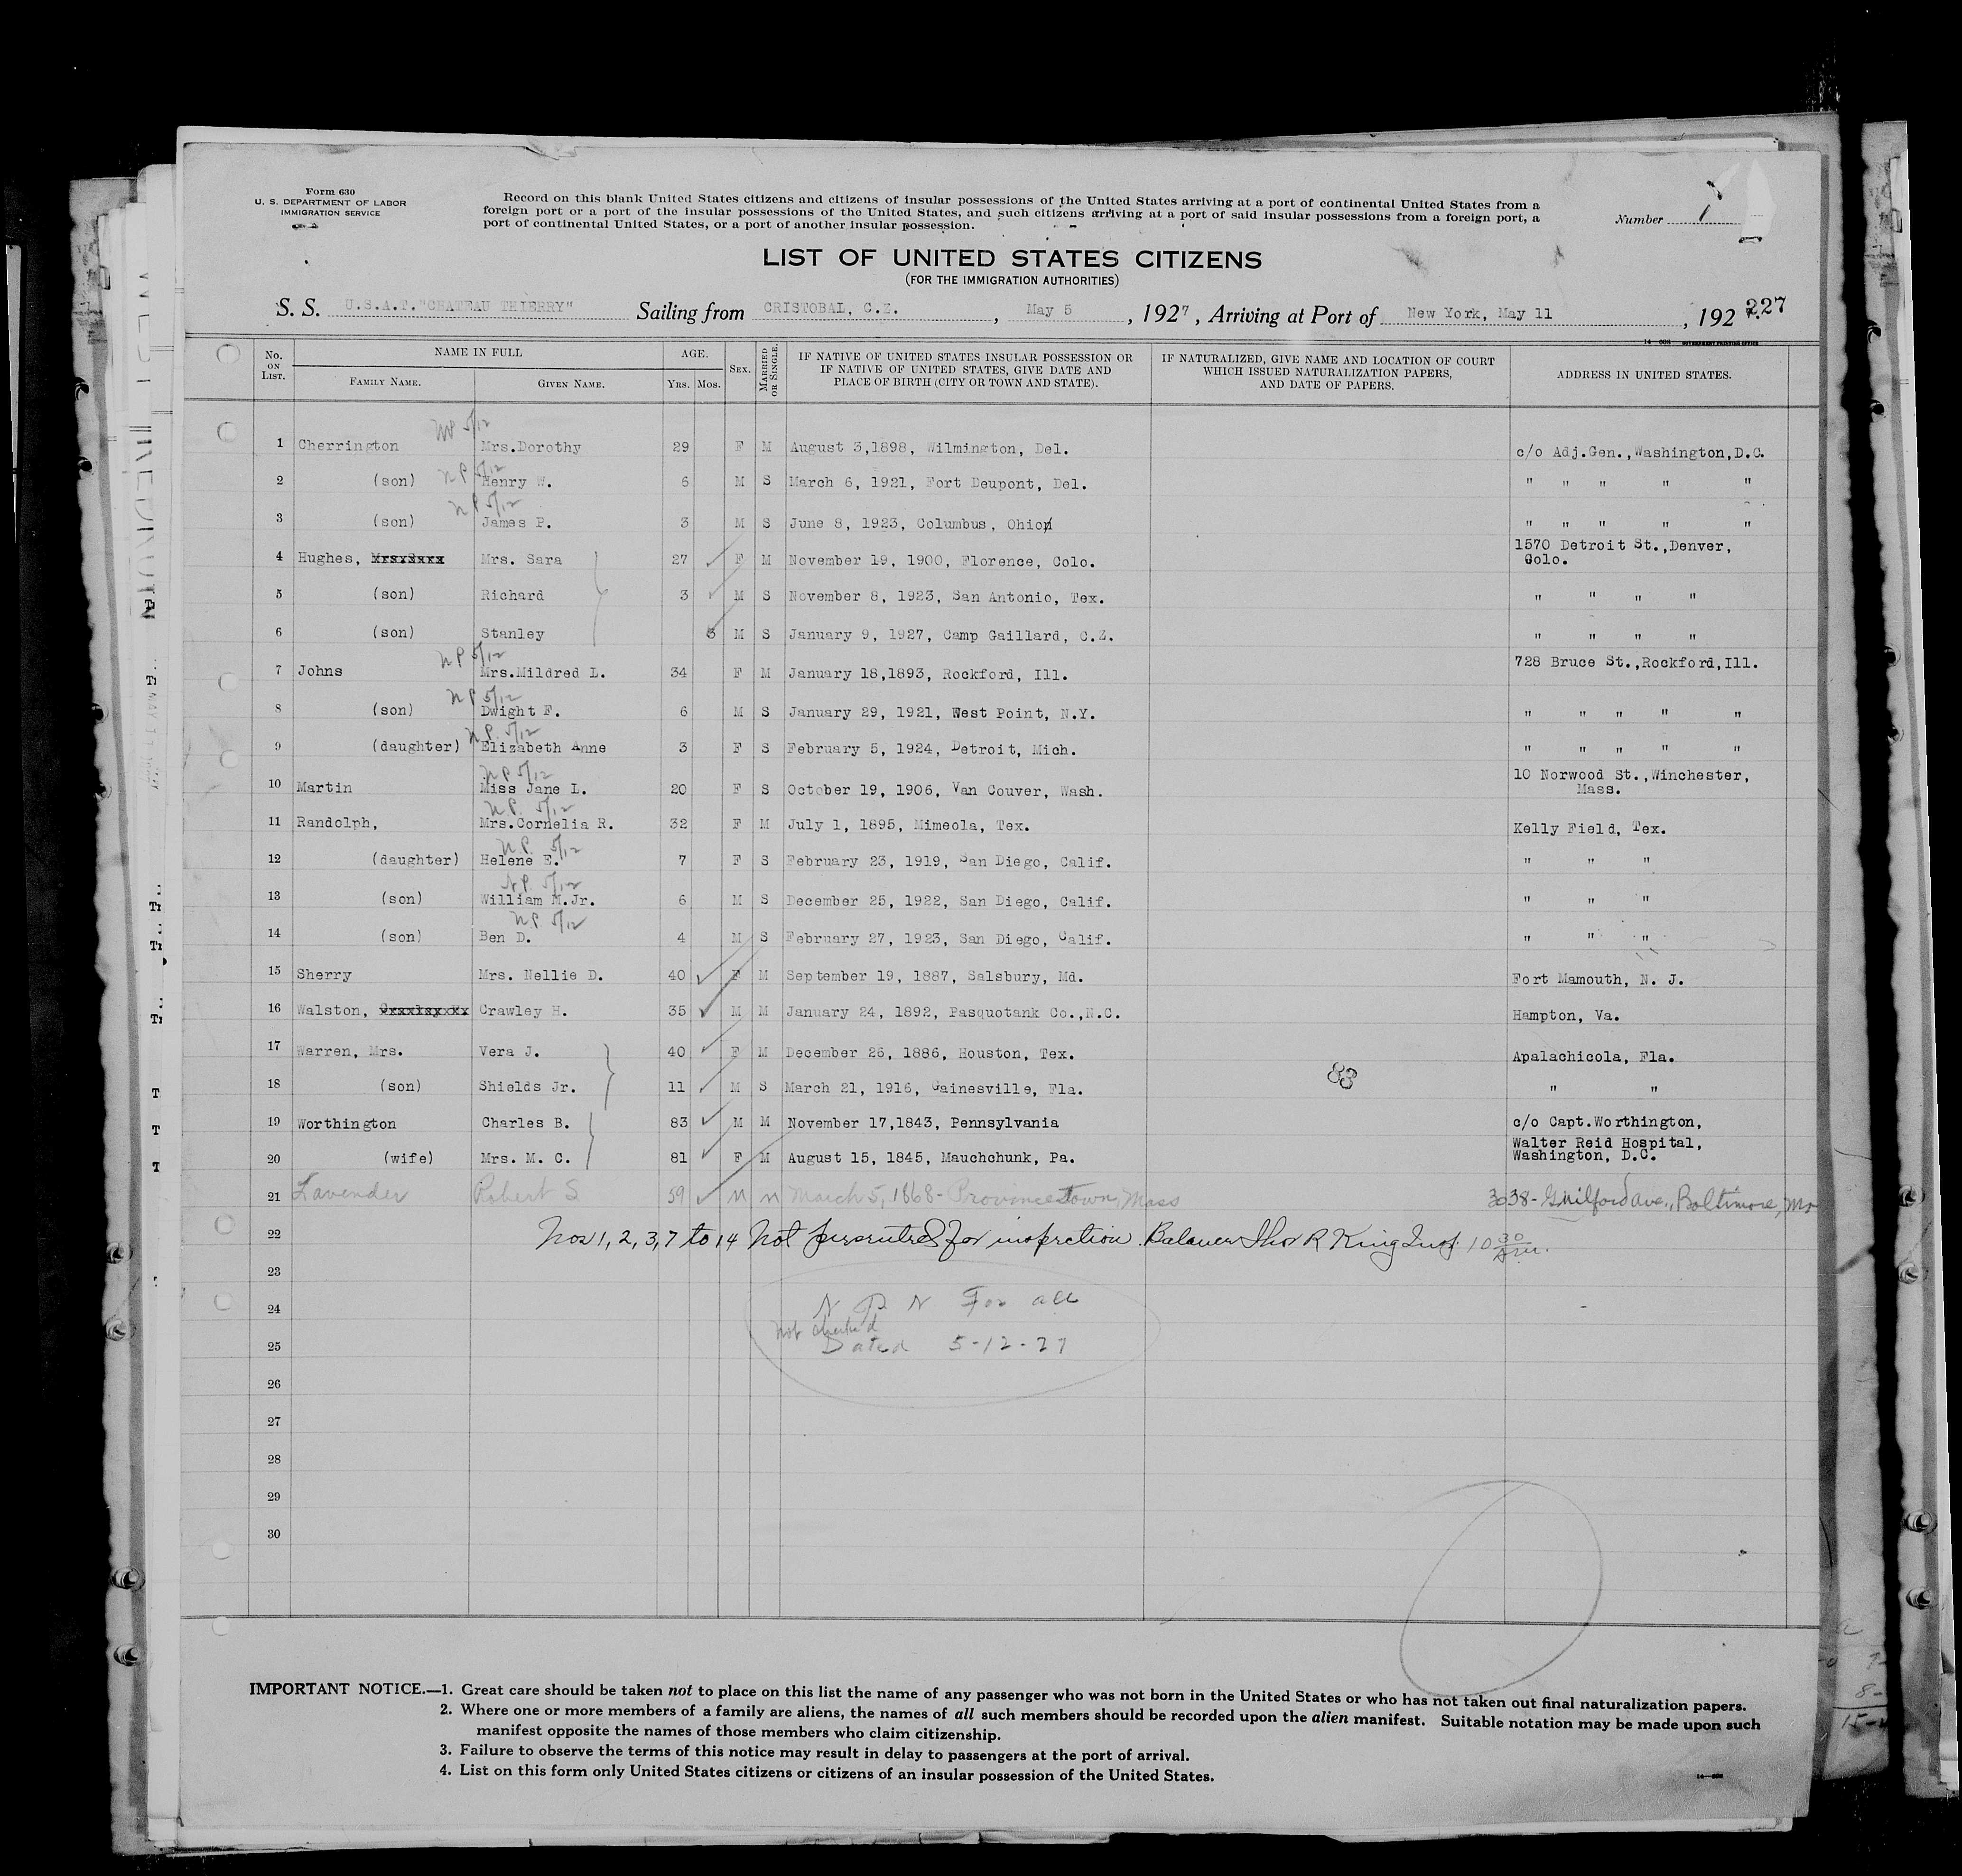 Form 630
U. S. DEPARTMENT OF LABOR
IMMIGRATION SERVICE
Record on this blank United States citizens and citizens of insular possessions of the United States arriving at a port of continental United States from a
foreign port or a port of the insular possessions of the United States, and such citizens arriving at a port of said insular possessions from a foreign port, a
port of continental United States, or a port of another insular possession.
Number 1
LIST OF UNITED STATES CITIZENS
(FOR THE IMMIGRATION AUTHORITIES)
S. S. U.S.A.T."CHATEAU THIERRY" Sailing from CRISTOBAL, C.Z. , May 5 , 1927 , Arriving at Port of New York, May 11 , 192 227
No. ON LIST. NAME IN FULL AGE. SEX. MARRIED OR SINGLE. IF NATIVE OF UNITED STATES INSULAR POSSESSION OR IF NATIVE OF UNITED STATES, GIVE DATE AND PLACE OF BIRTH (CITY OR TOWN AND STATE). IF NATURALIZED, GIVE NAME AND LOCATION OF COURT WHICH ISSUED NATURALIZATION PAPERS, AND DATE OF PAPERS. ADDRESS IN UNITED STATES.
FAMILY NAME. GIVEN NAME. Yrs. Mos.
NP 5/12
1 Cherrington Mrs.Dorothy 29 F M August 3,1898, Wilmington, Del. c/o Adj.Gen.,Washington,D.C.
2 (son) NP 5/12 Henry W. 6 M S March 6, 1921, Fort Deupont, Del. " " " " "
NP 5/12
3 (son) James P. 3 M S June 8, 1923, Columbus, Ohio " " " " "
4 Hughes, Mrs. Sara 27 F M November 19, 1900, Florence, Colo. 1570 Detroit St.,Denver, Colo.
5 (son) Richard 3 M S November 8, 1923, San Antonio, Tex. " " " "
6 (son) Stanley 3 M S January 9, 1927, Camp Gaillard, C.Z. " " " "
NP 5/12
7 Johns Mrs.Mildred L. 34 F M January 18,1893, Rockford, Ill. 728 Bruce St.,Rockford,Ill.
NP 5/12
8 (son) Dwight F. 6 M S January 29, 1921, West Point, N.Y. " " " " "
NP. 5/12
9 (daughter) Elizabeth Anne 3 F S February 5, 1924, Detroit, Mich. " " " " "
NP 5/12
10 Martin Miss Jane L. 20 F S October 19, 1906, Van Couver, Wash. 10 Norwood St.,Winchester, Mass.
NP. 5/12
11 Randolph, Mrs.Cornelia R. 32 F M July 1, 1895, Mimeola, Tex. Kelly Field, Tex.
NP. 5/12
12 (daughter) Helene E. 7 F S February 23, 1919, San Diego, Calif. " " "
NP. 5/12
13 (son) William M.Jr. 6 M S December 25, 1922, San Diego, Calif. " " "
NP 5/12
14 (son) Ben D. 4 M S February 27, 1923, San Diego, Calif. " " "
15 Sherry Mrs. Nellie D. 40 F M September 19, 1887, Salsbury, Md. Fort Mamouth, N. J.
16 Walston, Crawley H. 35 M M January 24, 1892, Pasquotank Co.,N.C. Hampton, Va.
17 Warren, Mrs. Vera J. 40 F M December 26, 1886, Houston, Tex. Apalachicola, Fla.
18 (son) Shields Jr. 11 M S March 21, 1916, Gainesville, Fla. 83 " "
19 Worthington Charles B. 83 M M November 17,1843, Pennsylvania c/o Capt.Worthington,
Walter Reid Hospital,
20 (wife) Mrs. M. C. 81 F M August 15, 1845, Mauchchunk, Pa. Washington, D.C.
21 Lavender Robert S 59 M M March 5, 1868- Provincetown, Mass 3038- Guilford ave., Baltimore, Md
22 Nos 1, 2, 3, 7 to 14 Not presented for inspection. Balance Thos R King Insp. 10 30 am.
23
24 N P N For all
not checked
25 Dated 5-12-27
26
27
28
29
30
IMPORTANT NOTICE.—1. Great care should be taken not to place on this list the name of any passenger who was not born in the United States or who has not taken out final naturalization papers.
2. Where one or more members of a family are aliens, the names of all such members should be recorded upon the alien manifest. Suitable notation may be made upon such
manifest opposite the names of those members who claim citizenship.
3. Failure to observe the terms of this notice may result in delay to passengers at the port of arrival.
4. List on this form only United States citizens or citizens of an insular possession of the United States.